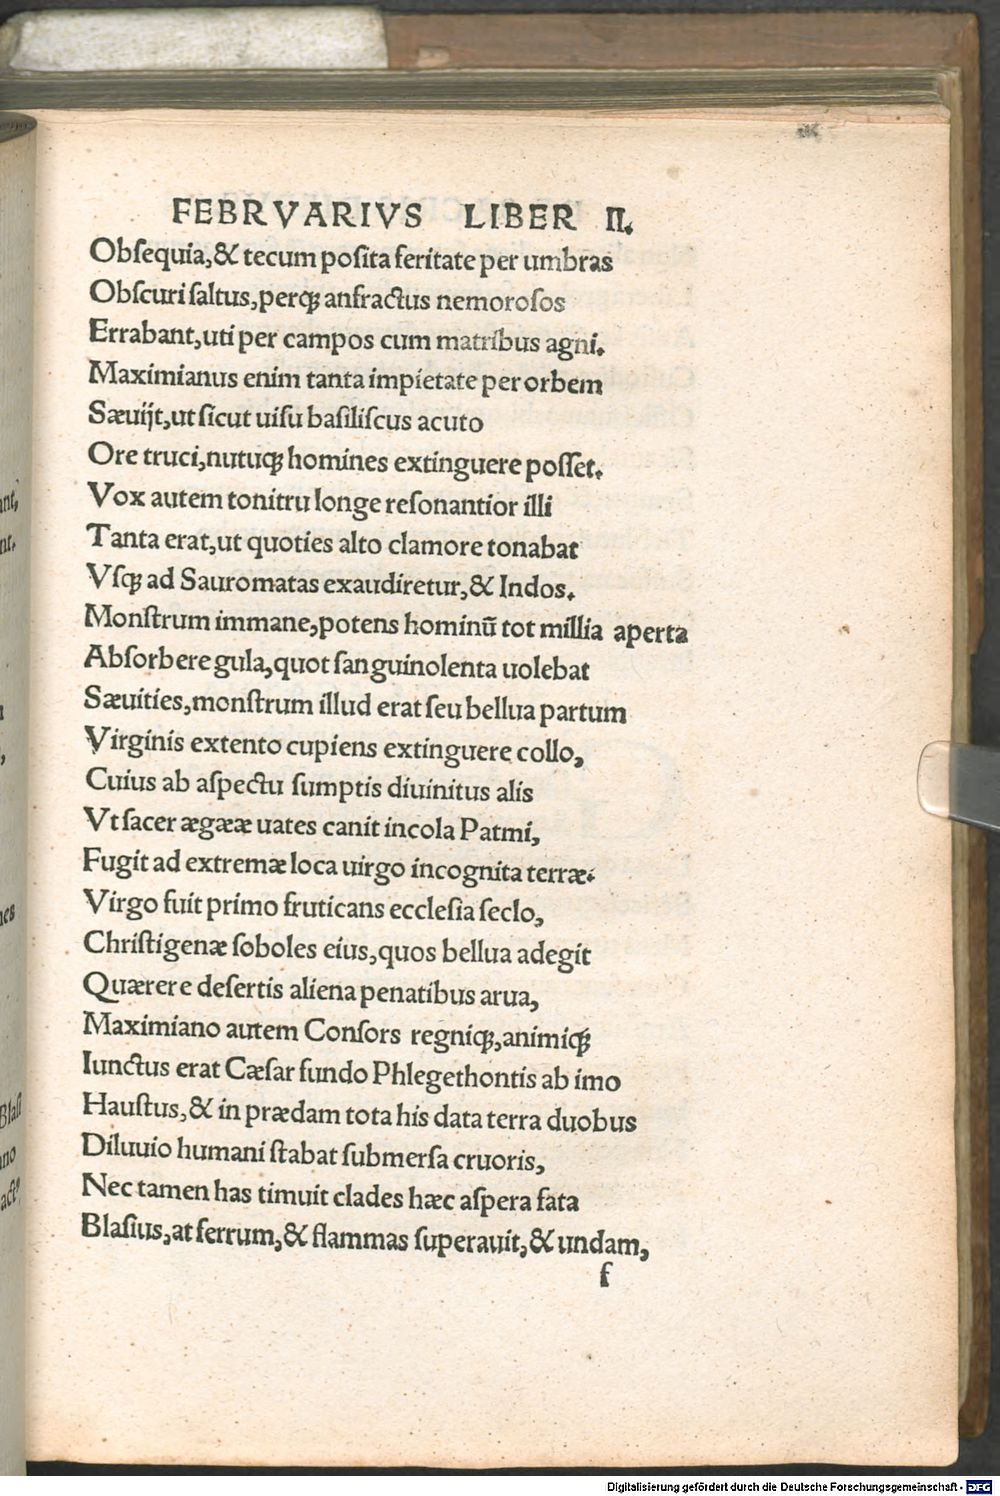 FEBRVARIVS LIBER II.
Obſequia,& tecum poſita feritate per umbras
Obſcuri ſaltus,perqꝫ anfractus nemoroſos
Errabant,uti per campos cum matribus agni.
Maximianus enim tanta impietate per orbem
Sæuijt,ut ſicut uiſu baſiliſcus acuto
Ore truci,nutuqꝫ homines extinguere poſſet.
Vox autem tonitru longe reſonantior illi
Tanta erat,ut quoties alto clamore tonabat
Vſqꝫ ad Sauromatas exaudiretur,& Indos.
Monſtrum immane,potens hominū tot millia aperta
Abſorbere gula,quot ſanguinolenta uolebat
Sæuities,monſtrum illud erat ſeu bellua partum
Virginis extento cupiens extinguere collo,
Cuius ab aſpectu ſumptis diuinitus alis
Vt ſacer ægææ uates canit incola Patmi,
Fugit ad extremæ loca uirgo incognita terræ.
Virgo fuit primo fruticans eccleſia ſeclo,
Chriſtigenæ ſoboles eius,quos bellua adegit
Quærere deſertis aliena penatibus arua,
Maximiano autem Conſors regniqꝫ,animiqꝫ
Iunctus erat Cæſar fundo Phlegethontis ab imo
Hauſtus,& in prædam tota his data terra duobus
Diluuio humani ſtabat ſubmerſa cruoris,
Nec tamen has timuit clades hæc aſpera fata
Blaſius,at ferrum,& flammas ſuperauit,& undam,
f
Digitalisierung gefördert durch die Deutsche Forschungsgemeinschaft - DFG